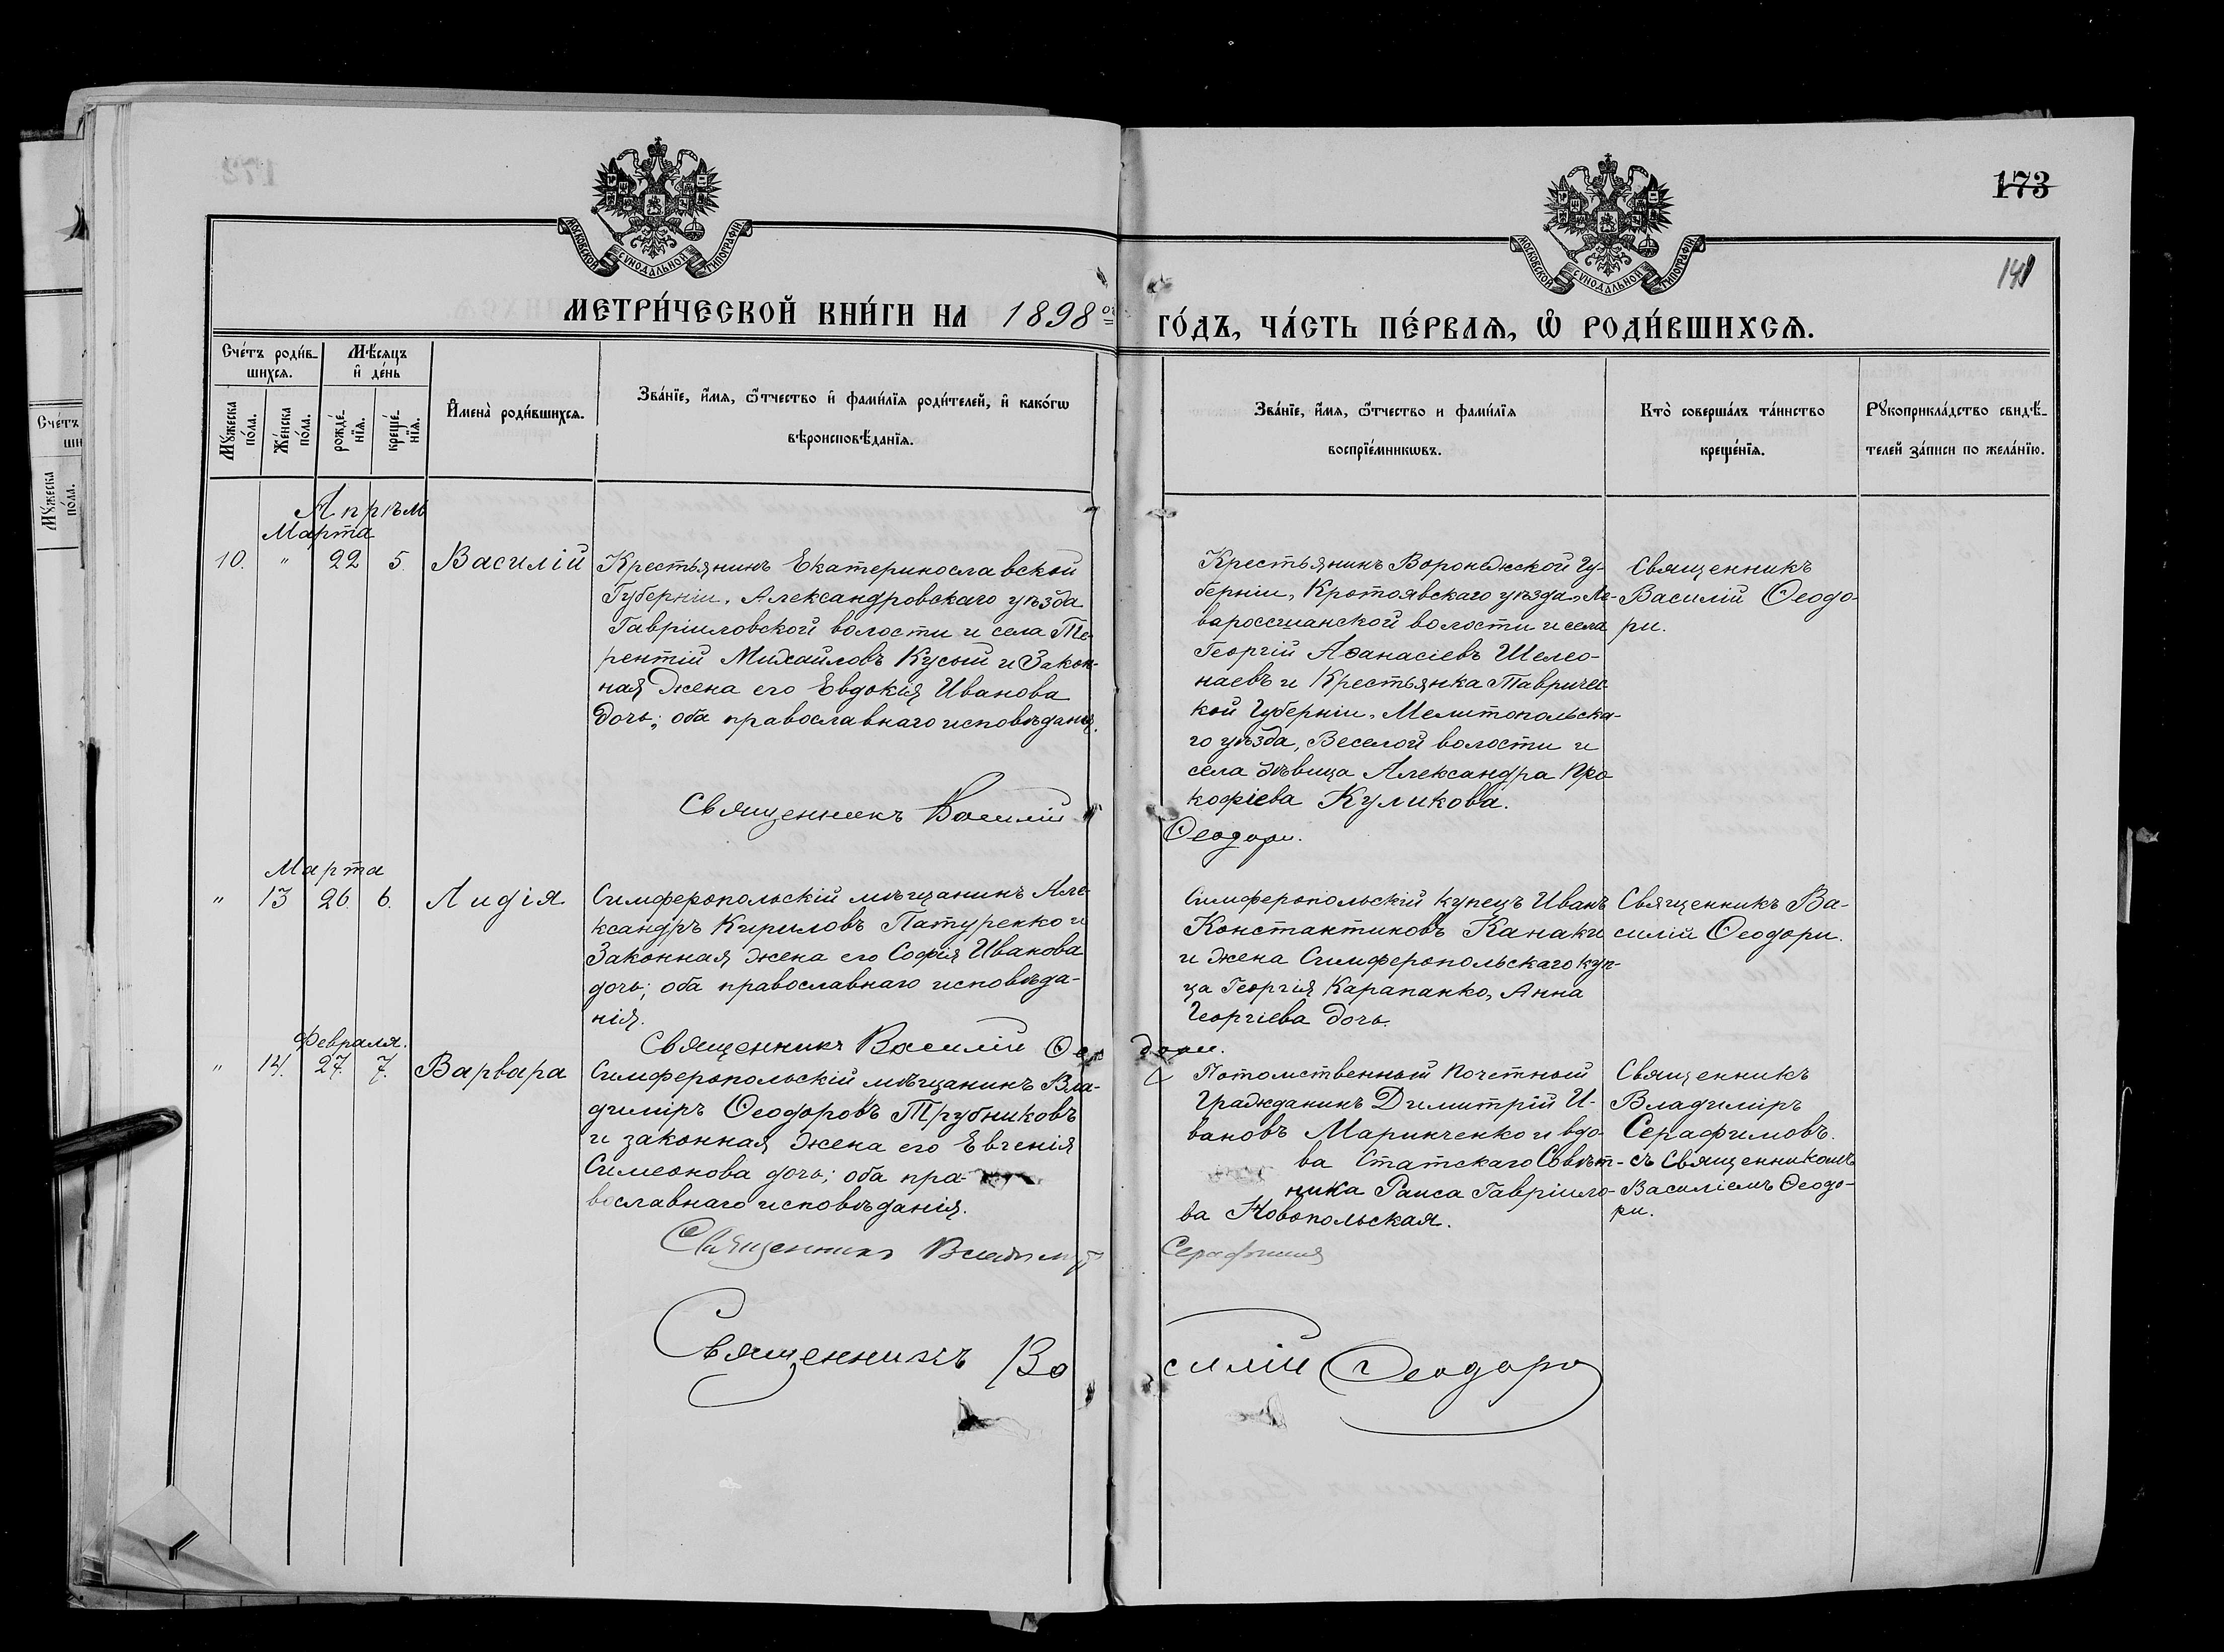 173
141
МОСКОВСКОЙ СѴНОДАЛЬНОЙ ТИПОГРАФІИ
МОСКОВСКОЙ СѴНОДАЛЬНОЙ ТИПОГРАФІИ
МЕТРИ́ЧЕСКОЙ КНИ́ГИ НА 1898 ой
ГО́ДЪ, ЧА́СТЬ ПЕ́РВАЯ, Ѿ РОДИ́ВШИХСЯ.
Сче́тъ роди́в-
шихся.
Мѣ́сяцъ
и҆ де́нь
Мꙋ́жеска
по́ла.
Же́нска
по́ла.
рожде́-
нїя.
креще́-
нїя.
И҆мена̀ роди́вшихся.
Зва́нїе, и҆́мя, ѻ҆́тчество и҆ фами́лїя роди́телей, и҆ како́гѡ
вѣроисповѣ́данїя.
Зва́нїе, и҆́мя, ѻ҆́тчество и фами́лїя
воспрїе́мникѡвъ.
Кто̀ соверша́лъ та́инство
креще́нїя.
Рꙋкоприкла́дство свидѣ́-
телей за́писи по жела́нїю.
Апрѣль
Марта
10. " 22 5. Василій
Крестьянинъ Екатеринославской
Губерніи, Александровскаго уѣзда
Гавріиловской волости и села Те-
рентій Михайловъ Кусый и Закон-
ная жена его Евдокія Иванова
дочь; оба православнаго исповѣданія.
Священникъ Василій
Крестьянинъ Воронежской Гу-
берніи, Кротоявскаго уѣзда, Ле-
вароссшанской волости и села
Георгій Аѳанасіевъ Шелео-
наевъ и Крестьянка Тавричес-
кой Губерніи, Мелитопольска-
го уѣзда, Веселой волости и
села дѣвица Александра Про-
кофіева Куликова.
Ѳеодори.
Священникъ
Василій Ѳеодо-
ри.
Марта
" 13 26. 6. Лидія
Симферопольскій мѣщанинъ Але-
ксандръ Кириловъ Патуренко и
Законная жена его Софія Иванова
дочь; оба православнаго исповѣда-
нія.
Священникъ Василій Ѳео
дори.
Симферопольскій купецъ Иванъ
Константиновъ Канаки
и жена Симферопольскаго куп-
ца Георгія Карапанко, Анна
Георгіева дочь.
Священникъ Ва-
силій Ѳеодори.
Февраля.
" 14. 27. 7. Варвара
Симферопольскій мѣщанинъ Вла-
диміръ Ѳеодоровъ Трубниковъ
и законная жена его Евгенія
Симеонова дочь; оба пра-
вославнаго исповѣданія.
Священникъ Владиміръ
Потомственный Почетный
Гражданинъ Димитрій И-
вановъ Маринченко и вдо-
ва Статскаго Совѣт-
ника Раиса Гавріило-
ва Новопольская.
Серафимовъ
Священникъ
Владиміръ
Серафимовъ.
съ Священникомъ
Василіемъ Ѳеодо-
ри.
Священникъ Ва
силій Ѳеодори
Сче́тъ
ши
Мꙋ́жеска
по́ла.